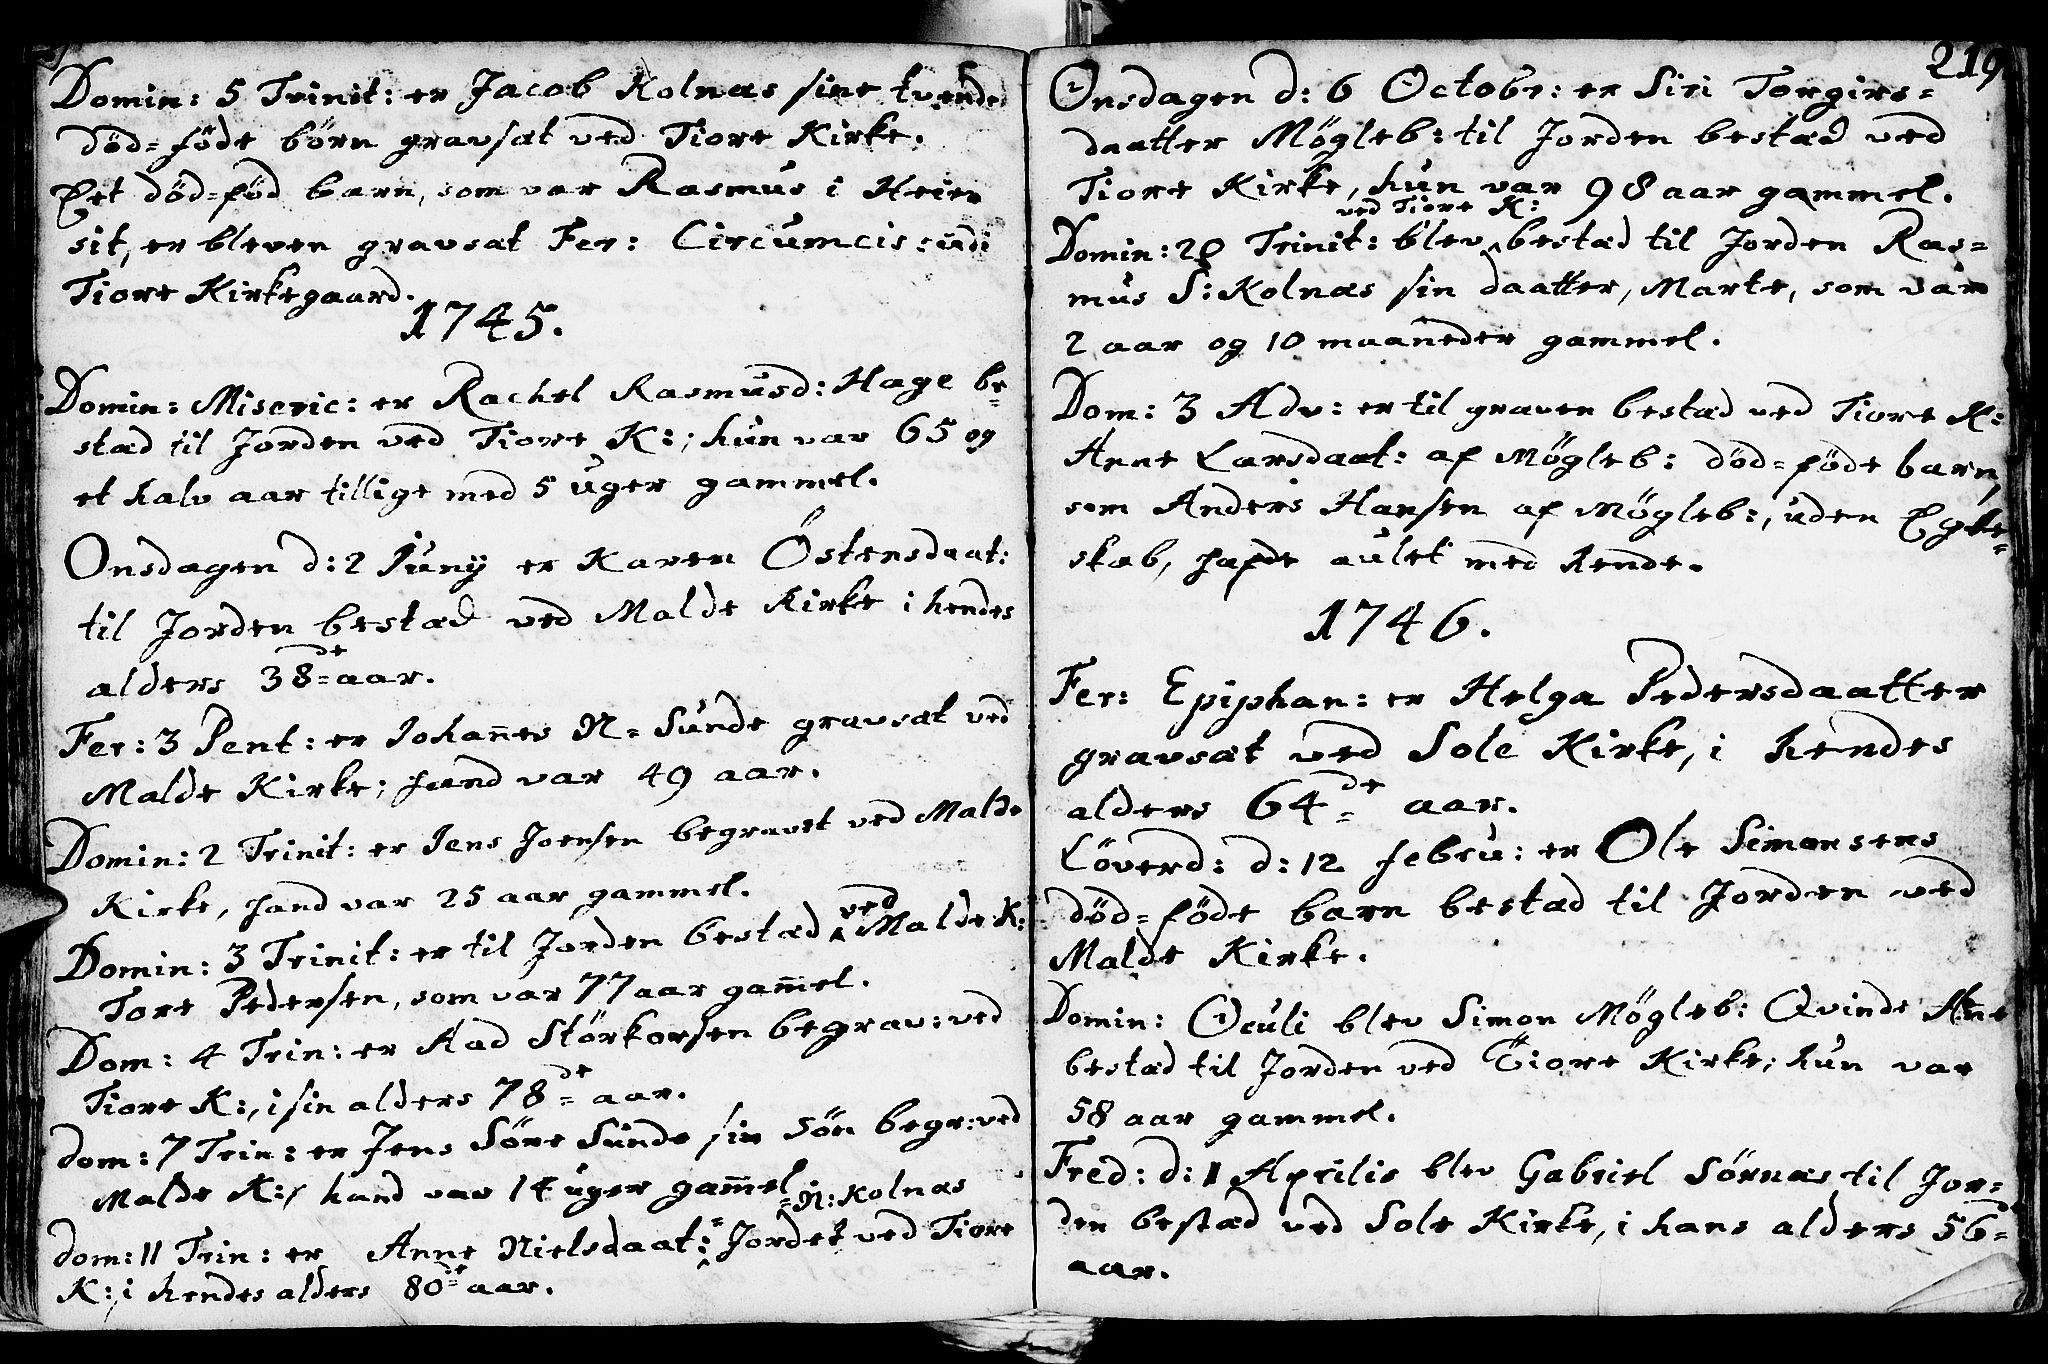 Domin: 5 Trinit: er Jacob Kolnæs sine tvende
död-föde börn gravsat ved Tiore Kirke.
Eet död-fød barn, som var Rasmus i Heien
sit, er bleven gravsat Fer: Circumcis: udi
Tiore Kirkegaard.
1745.
Domin: Miseric: er Rachel Rasmusd: Hage be-
stæd til Jorden ved Tiore K:; hun var 65 og
et halv aar tillige med 5 uger gammel.
Onsdagen d: 2 Juny er Karen Östensdaat:
til Jorden bestæd ved Malde Kirke i hendes
alders 38de aar.
Fer: 3 Pent: er Johannes N-Sunde gravsat ved
Malde Kirke; hand var 49 aar.
Domin: 2 Trinit: er Jens Joensen begravet ved Malde
Kirke, hand var 25 aar gammel.
Domin: 3 Trinit: er til Jorden bestæd ved Malde K:
Tore Pedersen, som var 77 aar gam̄el.
Dom: 4 Trin: er Aad Störkorsen begrav: ved
Tiore K:, i sin alders 78de aar.
dom: 7 Trin: er Jens Söre Sunde sin sön begr: ved
Malde K:, hand var 14 uger gam̄el
N: Kolnæs
dom: 11 Trin: er Anne Nielsdaat: Jordet ved Tiore
K: i hendes alders 80de aar.
219
Onsdagen d: 6 Octobr: er Siri Torgirs-
daatter Mögleb: til Jorden bestæd ved
Tiore Kirke, hun var 98 aar gammel.
ved Tiore K:
Domin: 20 Trinit: blev bestæd til Jorden Ras-
mus S: Kolnæs sin daatter, Marte, som var
2 aar og 10 maaneder gammel.
Dom: 3 Adv: er til graven bestæd ved Tiore K:
Anne Larsdaat: af Mögleb: död-föde barn,
som Anders Hansen af Mögleb:, uden Egte-
skab, hafde aulet med hende.
1746.
Fer: Epiphan: er Helga Pedersdaatter
gravsat ved Sole Kirke, i hendes
alders 64de aar.
Löverd: d: 12 febru: er Ole Simonsens
död-föde barn bestæd til Jorden ved
Malde Kirke.
Domin: Oculi blev Simon Mögleb: Qvinde Ane
bestæd til Jorden ved Tiore Kirke; hun var
58 aar gammel.
Fred: d: 1 Aprilis blev Gabriel Sörnæs til Jor-
den bestæd ved Sole Kirke, i hans alders 56de
aar.